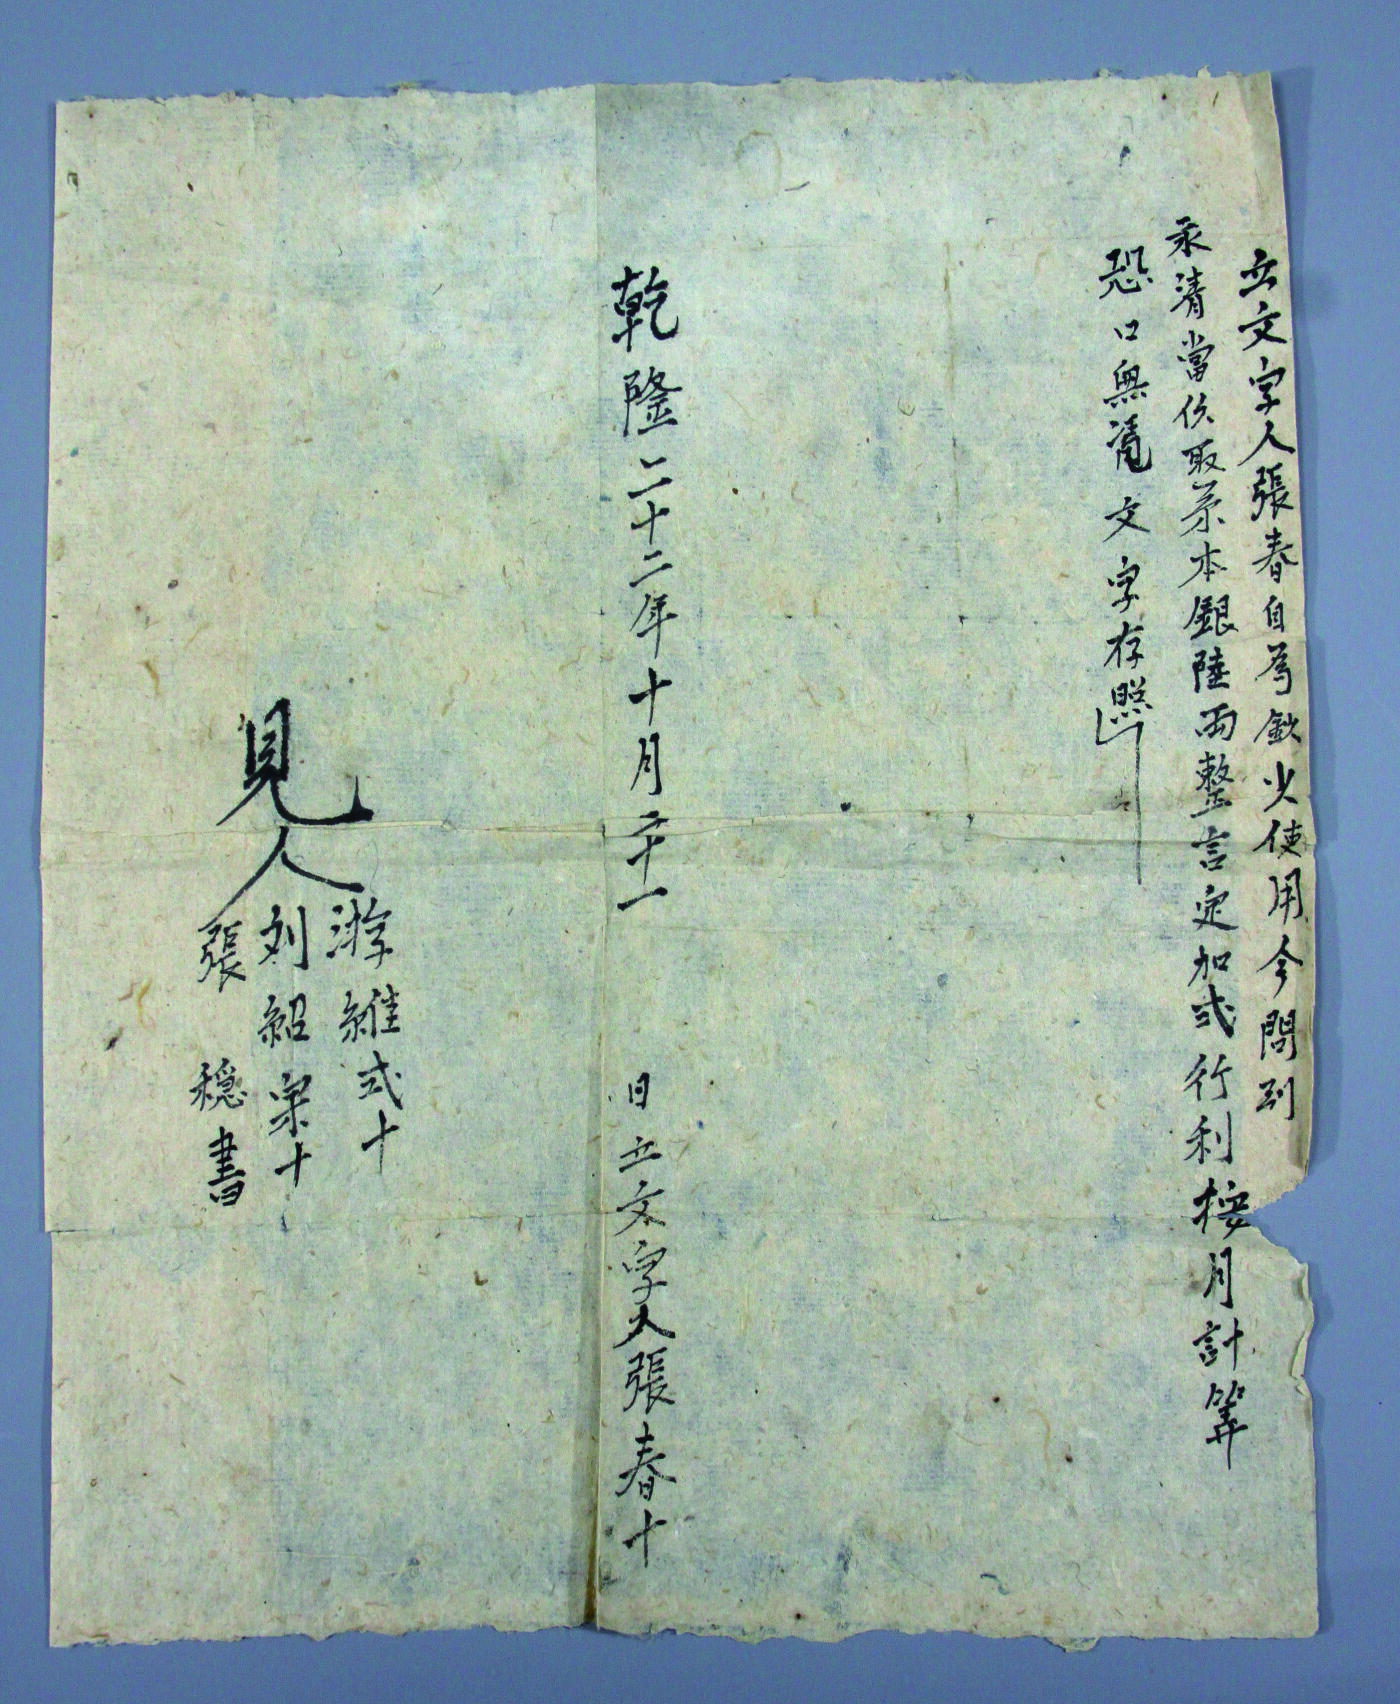 立文字人張春自為欽少使用今問到
永清當伙取系本銀陸両整言定加弍行利按月計筭
恐口無凴文字存照
乾隆二十二年十月二十一日立文字人張春十
見人
游維式十
刘紹宗十
張穏書